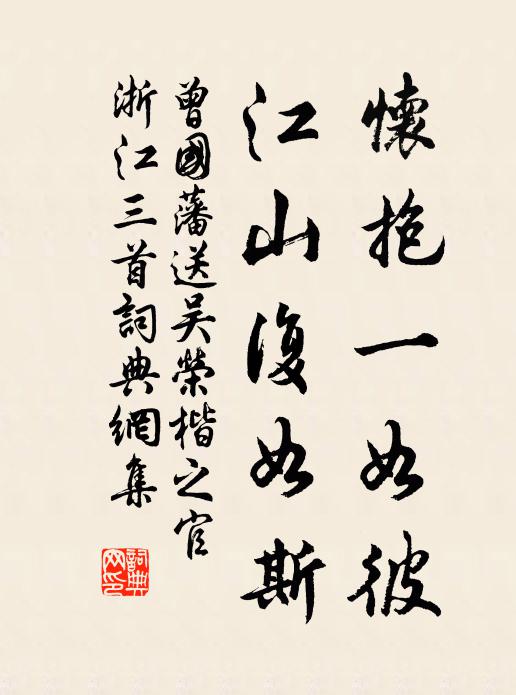 懷抱一如彼
江山復如斯
曾國藩送吴榮楷之官
浙江三首詞典網集
詞典
网印